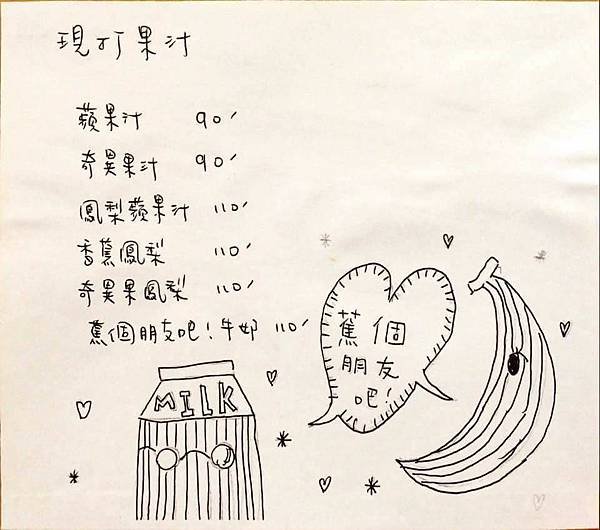 現打果汁
蘋果汁 90'
奇異果汁 90'
鳳梨蘋果汁 110'
香蕉鳳梨 110'
奇異果鳳梨 110'
蕉個朋友吧!牛奶 110'
蕉個
朋友
吧!
MILK